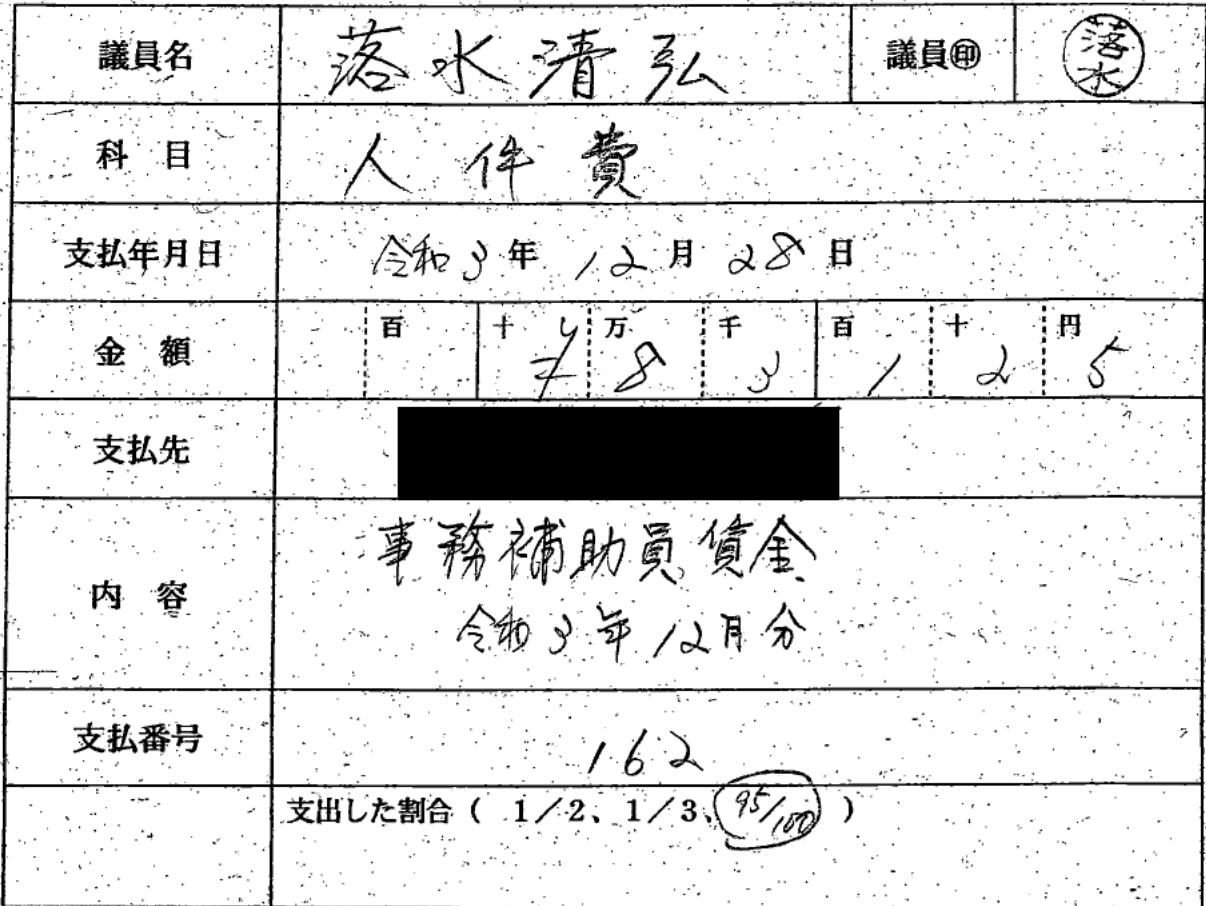 議員名 落水清弘 議員㊞ 落水
科目 人件費
支払年月日 令和3年12月28日
金額 百 十 万 千 百 十 円
¥ 8 3 1 2 5
支払先
内容 事務補助員賃金
令和3年12月分
支払番号 162
支出した割合( 1/2、1/3、95/100 )